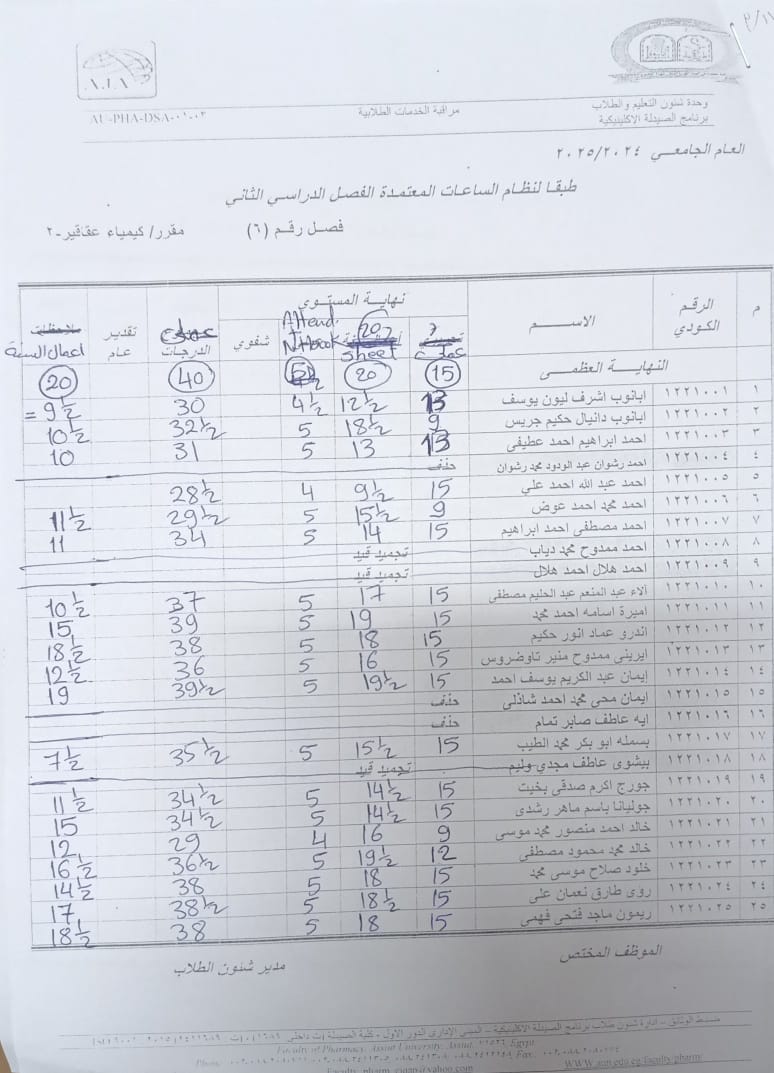 ٢/١٧
A.I.A
AU-PHA-DSA-٠٠١-٠٣
مراقبة الخدمات الطلابية
وحدة شئون التعليم والطلاب
برنامج الصيدلة الاكلينيكية
العام الجامعي ٢٠٢٥/٢٠٢٤
طبقا لنظام الساعات المعتمدة الفصل الدراسي الثاني
فصل رقم (٦) مقرر/ كيمياء عقاقير-٢
م الرقم الكودي الاســـم نهاية المستوى شفوي الدرجات تقدير عام ملاحظات اعمال السنة
Attend. Ntbook sheet
النهايـــة العظمـــى 15 20 5 40 20
١ ١٢٢١٠٠١ ابانوب اشرف ليون يوسف 13 12½ 4½ 30 = 9½
٢ ١٢٢١٠٠٢ ابانوب دانيال حكيم جريس 9 18½ 5 32½ 10½
٣ ١٢٢١٠٠٣ احمد ابراهيم احمد عطيفى 13 13 5 31 10
٤ ١٢٢١٠٠٤ احمد رشوان عبد الودود محمد رشوان حذف
٥ ١٢٢١٠٠٥ احمد عبد الله احمد علي 15 9½ 4 28½
٦ ١٢٢١٠٠٦ احمد محمد احمد عوض 9 15½ 5 29½ 11½
٧ ١٢٢١٠٠٧ احمد مصطفى احمد ابراهيم 15 14 5 34 11
٨ ١٢٢١٠٠٨ احمد ممدوح محمد دياب تجميد قيد
٩ ١٢٢١٠٠٩ احمد هلال احمد هلال تجميد قيد
١٠ ١٢٢١٠١٠ آلاء عبد المنعم عبد الحليم مصطفى 15 17 5 37 10½
١١ ١٢٢١٠١١ اميرة اسامه احمد محمد 15 19 5 39 15
١٢ ١٢٢١٠١٢ اندرو عماد انور حكيم 15 18 5 38 18½
١٣ ١٢٢١٠١٣ ايرينى ممدوح منير تاوضروس 15 16 5 36 12½
١٤ ١٢٢١٠١٤ إيمان عبد الكريم يوسف احمد 15 19½ 5 39½ 19
١٥ ١٢٢١٠١٥ ايمان محى محمد احمد شاذلى حذف
١٦ ١٢٢١٠١٦ ايه عاطف صابر تمام حذف
١٧ ١٢٢١٠١٧ بسمله ابو بكر محمد الطيب 15 15½ 5 35½ 7½
١٨ ١٢٢١٠١٨ بيشوى عاطف مجدي وليم تجميد قيد
١٩ ١٢٢١٠١٩ جورج اكرم صدقى بخيت 15 14½ 5 34½ 11½
٢٠ ١٢٢١٠٢٠ جوليانا باسم ماهر رشدى 15 14½ 5 34½ 15
٢١ ١٢٢١٠٢١ خالد احمد منصور محمد موسى 9 16 4 29 12
٢٢ ١٢٢١٠٢٢ خالد محمد محمود مصطفى 12 19½ 5 36½ 16½
٢٣ ١٢٢١٠٢٣ خلود صلاح موسى محمد 15 18 5 38 14½
٢٤ ١٢٢١٠٢٤ روى طارق نعمان على 15 18½ 5 38½ 17
٢٥ ١٢٢١٠٢٥ ريمون ماجد فتحى فهمى 15 18 5 38 18½
الموظف المختص
مدير شئون الطلاب
Faculty of Pharmacy, Assiut University, Assiut, ٧١٥٢٦ Egypt